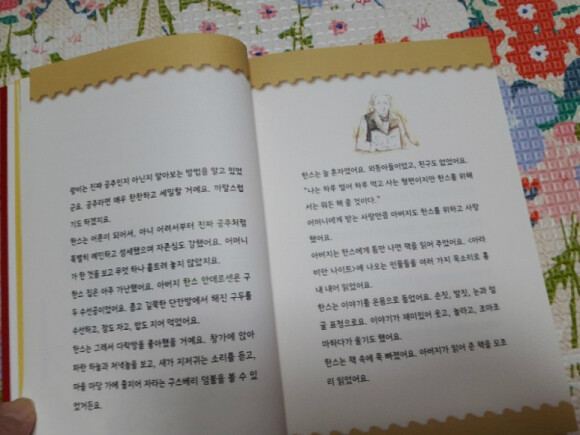 왕비는 진짜 공주인지 아닌지 알아보는 방법을 알고 있었
군요. 공주라면 매우 찬찬하고 세밀할 거예요. 까탈스럽
기도 하겠지요.
한스는 어른이 되어서, 아니 어려서부터 진짜 공주처럼
특별히 예민하고 섬세했으며 자존심도 강했어요. 어머니
가 한 것을 보고 무엇 하나 흘트려 놓지 않았지요.
한스 집은 아주 가난했어요. 아버지 한스 안데르센은 구
두 수선공이었어요. 좁고 길쭉한 단칸방에서 해진 구두를
수선하고, 잠도 자고, 밥도 지어 먹었어요.
한스는 그래서 다락방을 좋아했을 거예요. 창가에 앉아
파란 하늘과 저녁놀을 보고, 새가 지저귀는 소리를 듣고,
마을 마당 가에 줄지어 자라는 구스베리 덤불을 볼 수 있
었거든요.
한스는 늘 혼자였어요. 외동아들이었고, 친구도 없었어요.
"나는 하루 벌어 하루 먹고 사는 형편이지만 한스를 위해
서는 뭐든 해 줄 것이다."
어머니에게 받는 사랑만큼 아버지도 한스를 위하고 사랑
했어요.
아버지는 한스에게 틈만 나면 책을 읽어 주었어요. <아라
비안 나이트>에 나오는 인물들을 여러 가지 목소리로 흉
내 내어 읽었어요.
한스는 이야기를 온몸으로 들었어요. 손짓, 발짓, 눈과 얼
굴 표정으로요. 이야기가 재미있어 웃고, 놀라고, 조마조
마하다가 울기도 했어요.
한스는 책 속에 푹 빠졌어요. 아버지가 읽어 준 책을 모조
리 읽었어요.